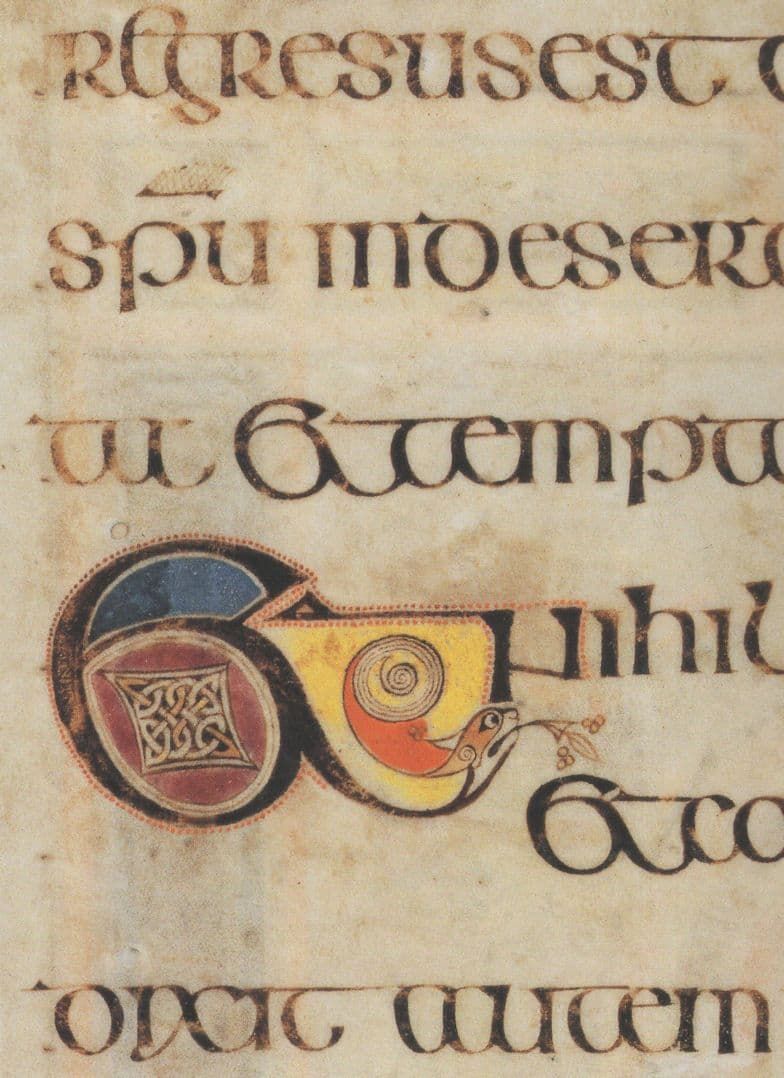 regresusest
spu indesert
et tempta
Et nihil
et co
dixit autem